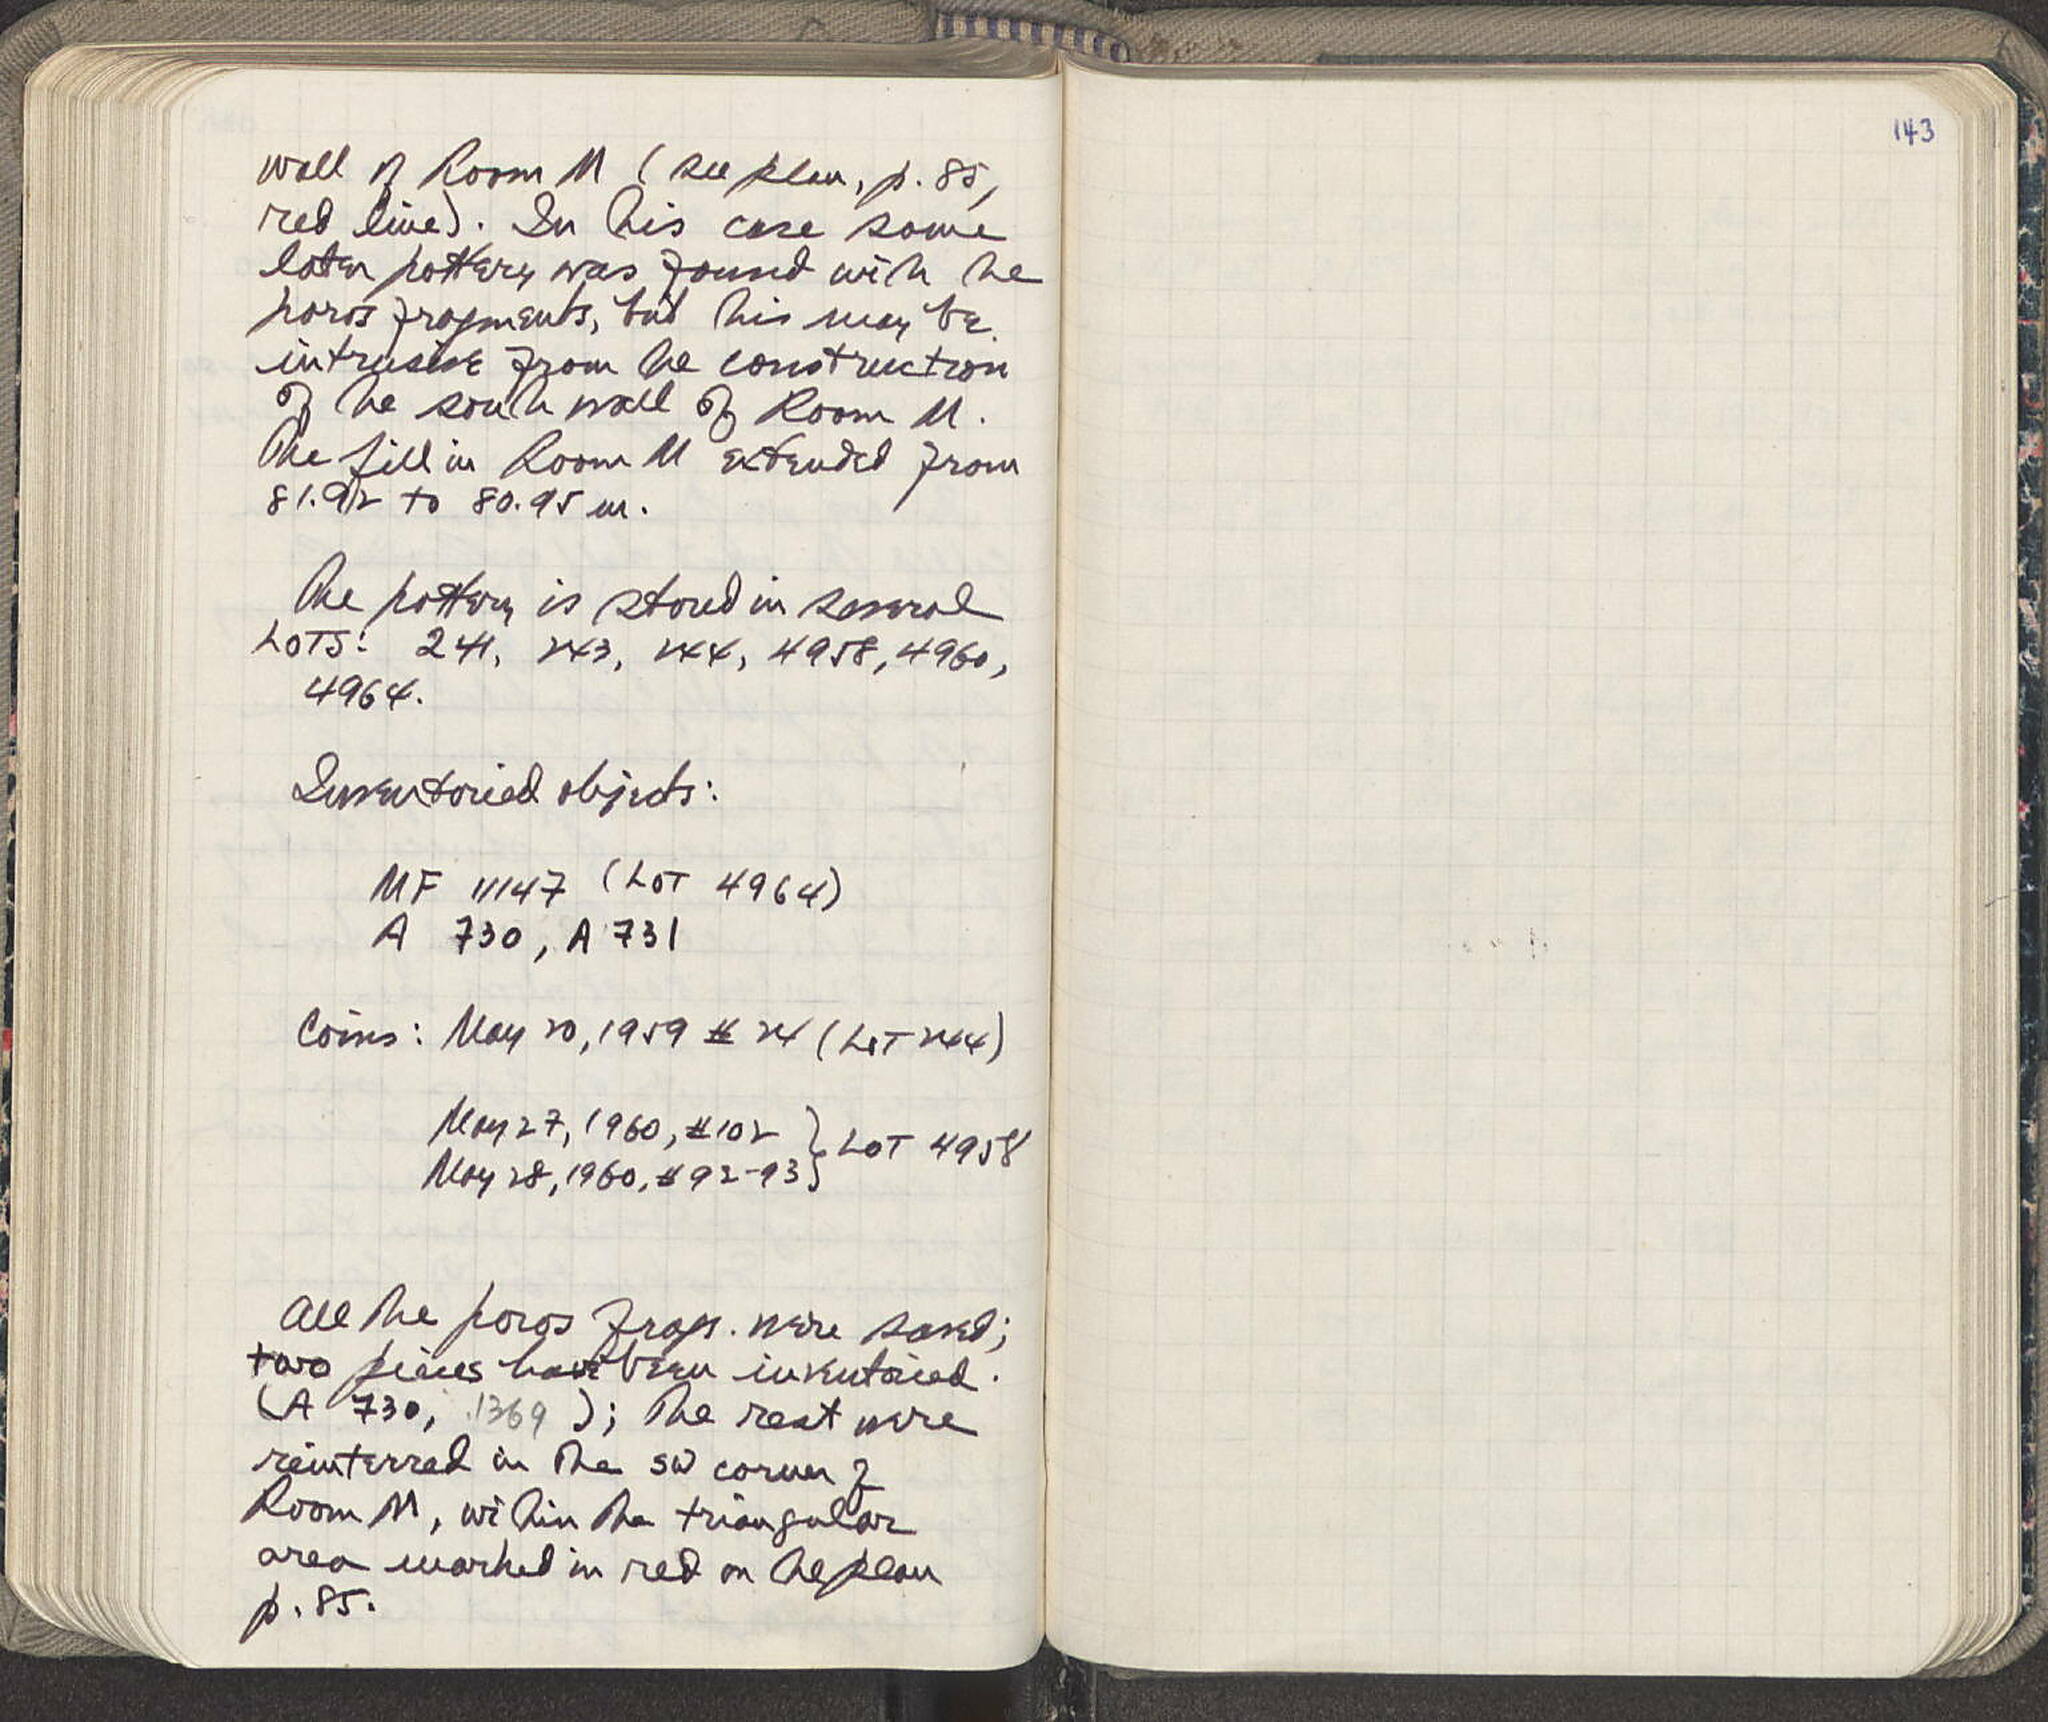 wall of Room M (see plan, p. 85,
red line). In this case some
later pottery was found with the
poros fragments, but this may be
intrusive from the construction
of the south wall of Room M.
The fill in Room M extended from
81.92 to 80.95 m.
The pottery is stored in several
LOTS: 241, 243, 244, 4958, 4960,
4964.
Inventoried objects:
MF 11147 (LOT 4964)
A 730, A 731
Coins: May 20, 1959 # 24 (LOT 244)
May 27, 1960, #102
May 28, 1960, #92-93 } LOT 4958
All the poros frags. were saved;
two pieces have been inventoried.
(A 730, 1369); The rest were
reinterred in the SW corner of
Room M, within the triangular
area marked in red on the plan
p. 85.
143